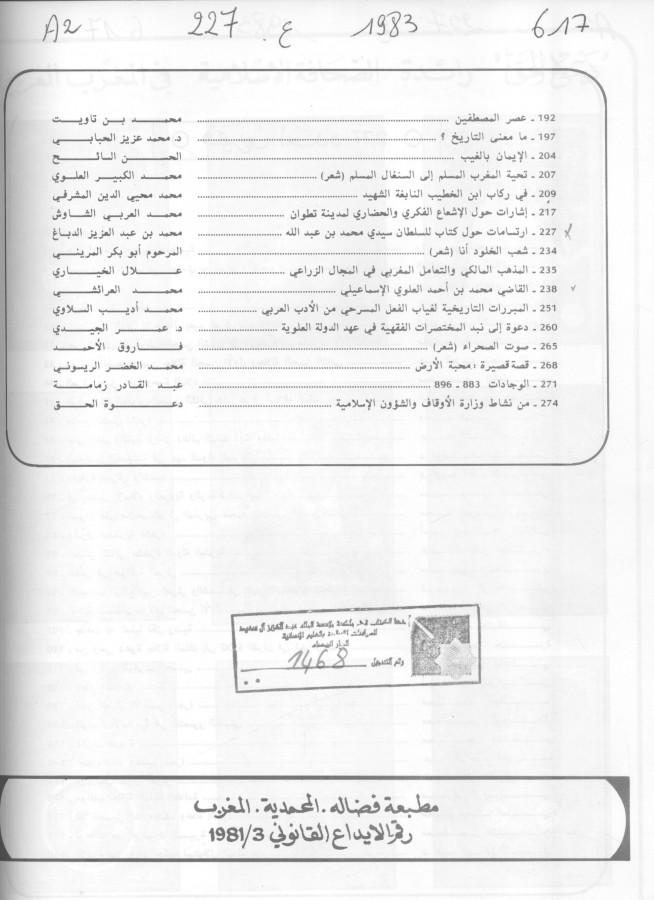 A2 227 ع 1983 617
192 ـ عصر المصطفين ........ محمد بن تاويت
197 ـ ما معنى التاريخ ؟ ........ د. محمد عزيز الحبابي
204 ـ الإيمان بالغيب ........ الحسن السائح
207 ـ تحية المغرب المسلم إلى السنغال المسلم (شعر) ........ محمد الكبير العلوي
209 ـ في ركاب ابن الخطيب النابغة الشهيد ........ محمد محيي الدين المشرفي
217 ـ إشارات حول الإشعاع الفكري والحضاري لمدينة تطوان ........ محمد العربي الشاوش
227 ـ ارتسامات حول كتاب للسلطان سيدي محمد بن عبد الله ........ محمد بن عبد العزيز الدباغ
234 ـ شعب الخلود أنا (شعر) ........ المرحوم أبو بكر المريني
235 ـ المذهب المالكي والتعامل المغربي في المجال الزراعي ........ علال الخياري
238 ـ القاضي محمد بن أحمد العلوي الإسماعيلي ........ محمد العرائشي
251 ـ المبررات التاريخية لغياب الفعل المسرحي من الأدب العربي ........ محمد أديب السلاوي
260 ـ دعوة إلى نبذ المختصرات الفقهية في عهد الدولة العلوية ........ د. عمر الجيدي
265 ـ صوت الصحراء (شعر) ........ فاروق الأحمد
268 ـ قصة قصيرة : محبة الأرض ........ محمد الخضر الريسوني
271 ـ الوجادات 883 ـ 896 ........ عبد القادر زمامة
274 ـ من نشاط وزارة الأوقاف والشؤون الإسلامية ........ دعوة الحق
مؤسسة الملك عبد العزيز آل سعود
الدار البيضاء
رقم التسجيل 1468
مطبعة فضاله . المحمدية . المغرب
رقم الايداع القانوني 3/1981